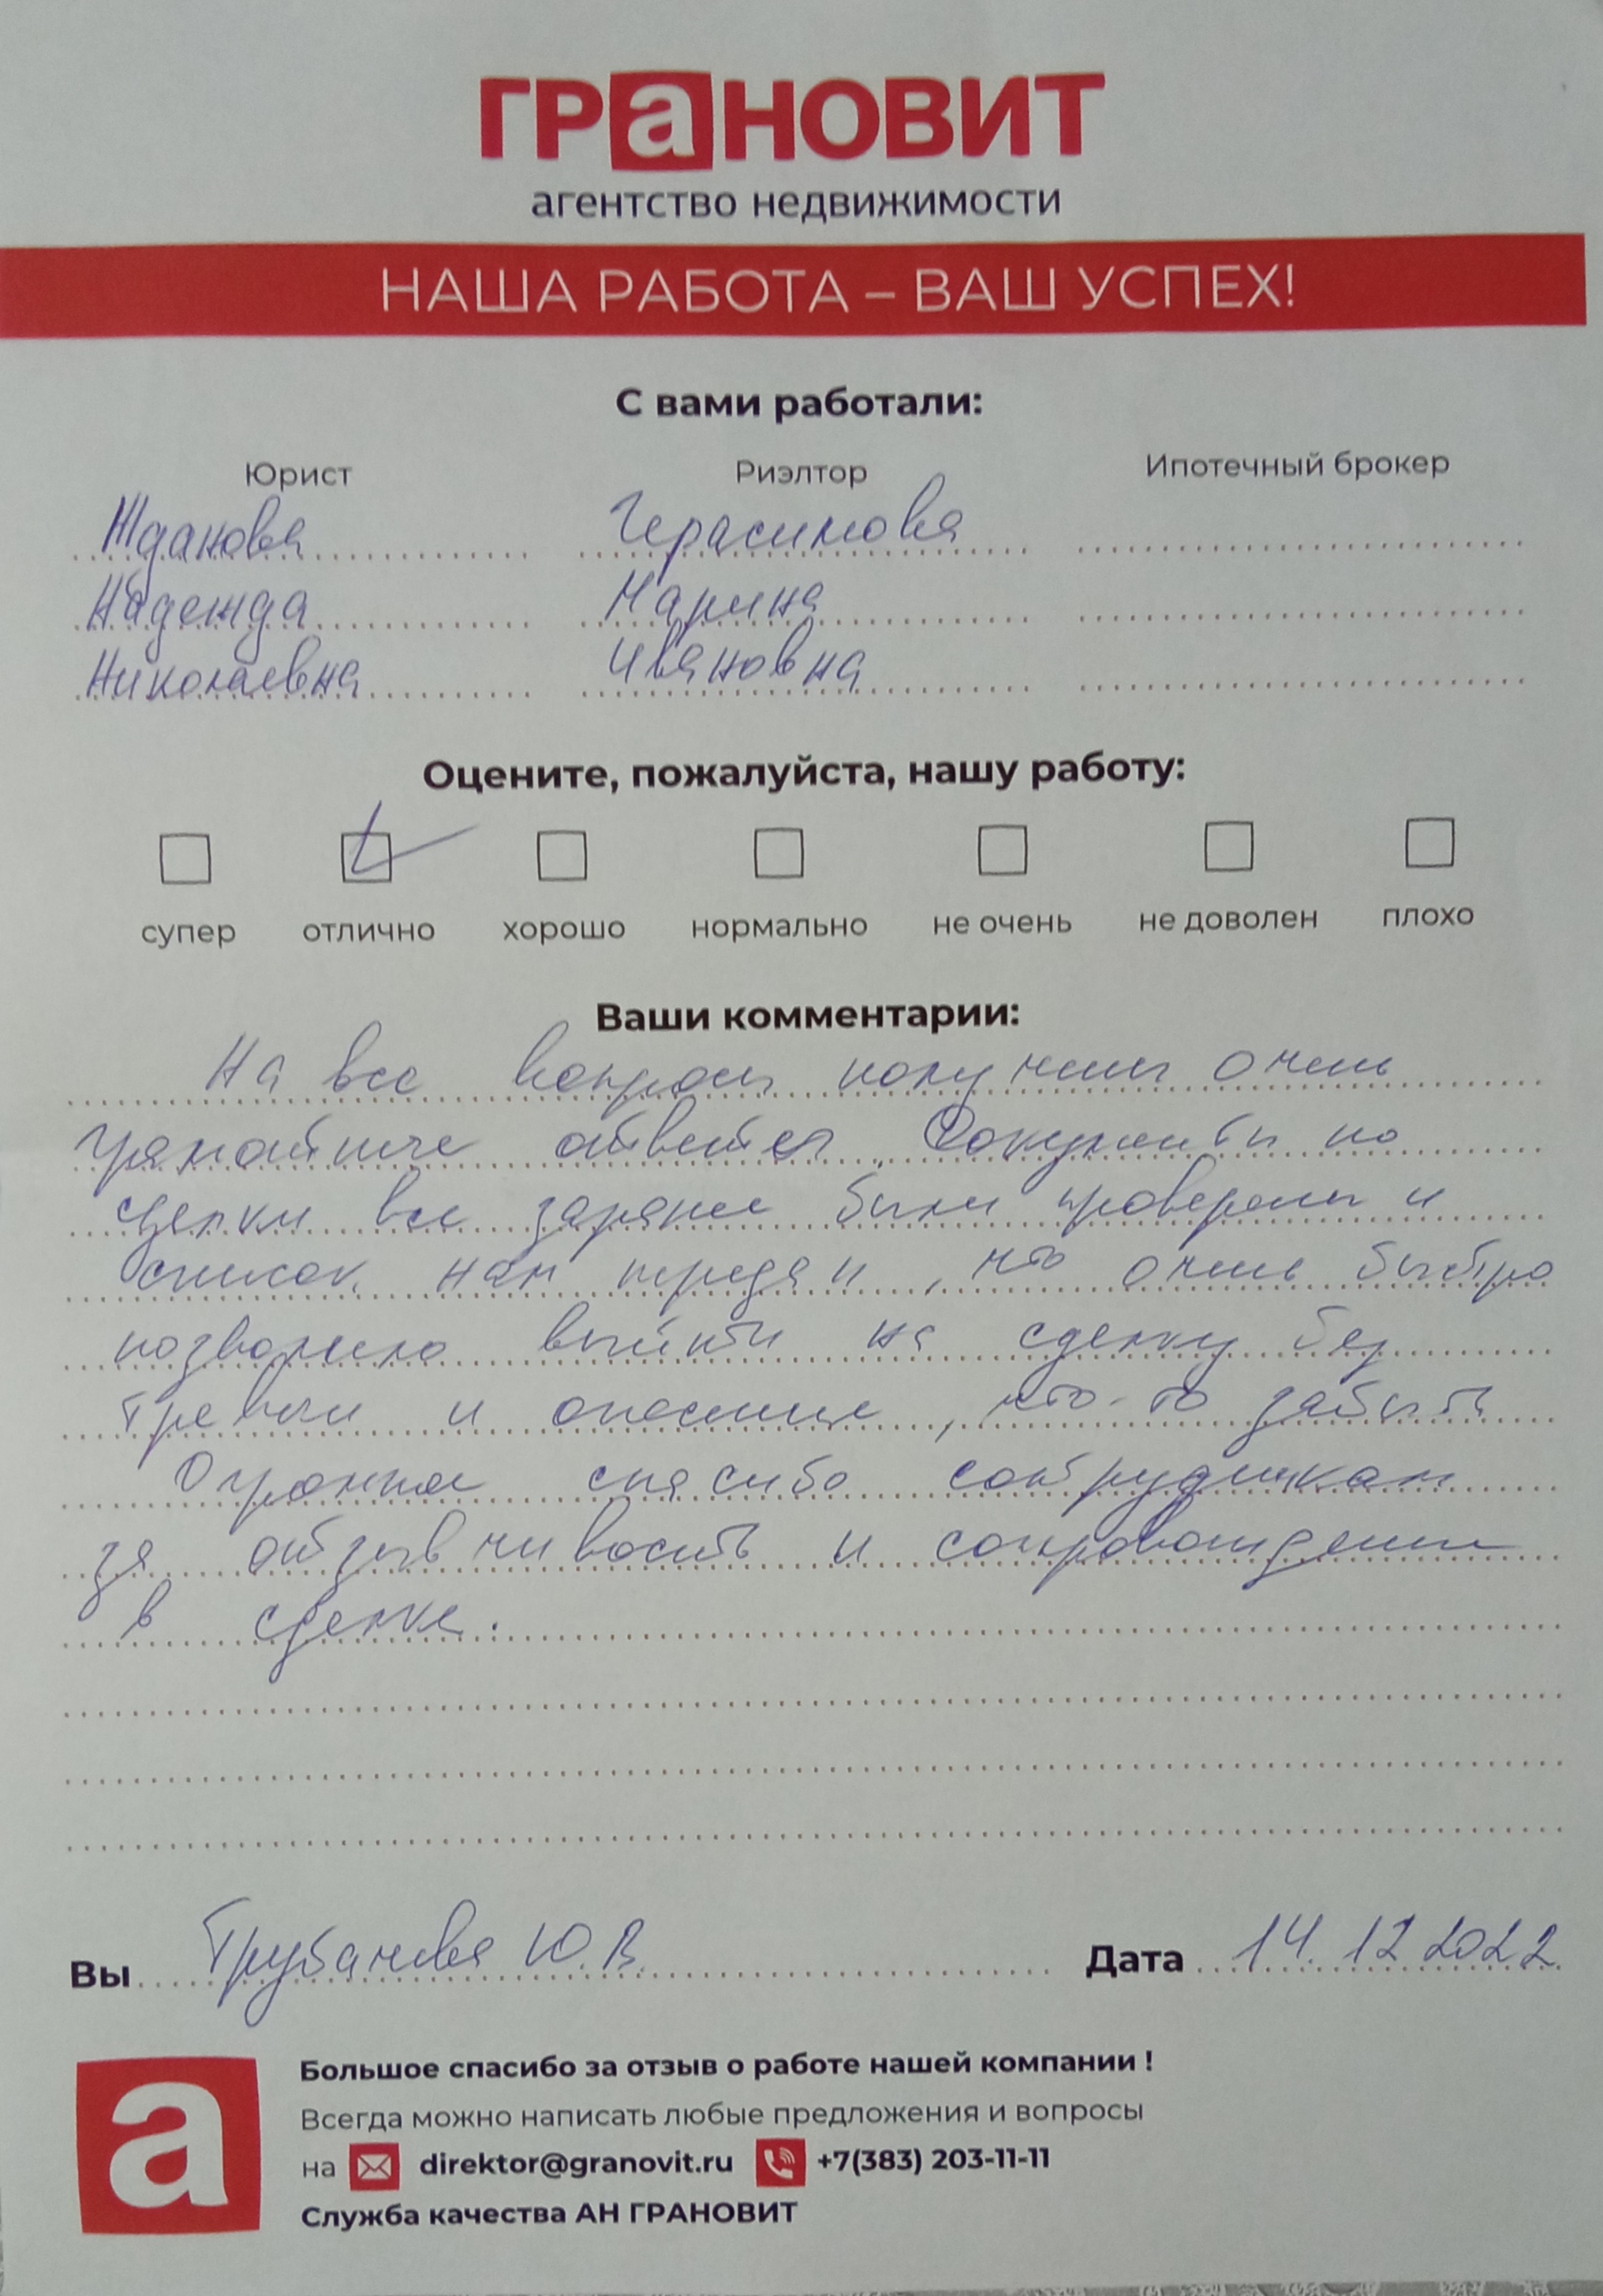 ГРаНОВИТ
агентство недвижимости
НАША РАБОТА – ВАШ УСПЕХ!
С вами работали:
Юрист Риэлтор Ипотечный брокер
Жданова Герасимова
Надежда Марина
Николаевна Ивановна
Оцените, пожалуйста, нашу работу:
супер отлично хорошо нормально не очень не доволен плохо
Ваши комментарии:
На все вопросы получены очень
грамотные ответы. Документы по
сделки все заранее были проверены и
список нам передан, что очень быстро
позволило выйти на сделку без
тревоги и опасения, что-то забыть
Огромное спасибо сотрудникам
за отзывчивость и сопровождение
в сделке.
Вы Трубачева Ю.В. Дата 14.12 2022
а
Большое спасибо за отзыв о работе нашей компании !
Всегда можно написать любые предложения и вопросы
на direktor@granovit.ru +7(383) 203-11-11
Служба качества АН ГРАНОВИТ